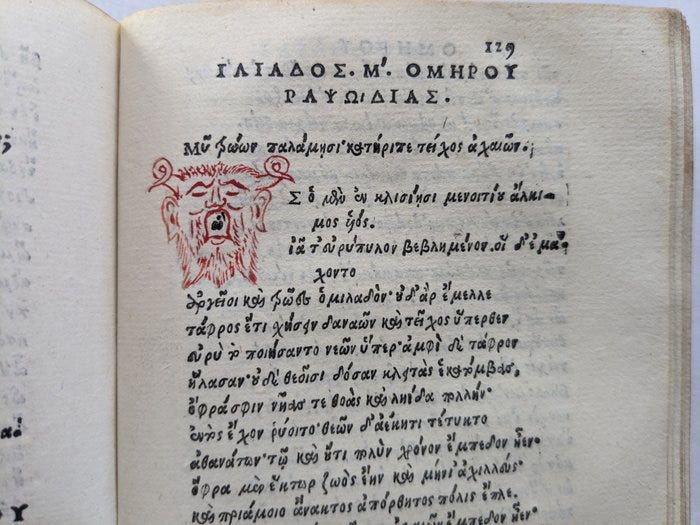 129
ἸΛΙΑΔΟΣ. Μ'. ΟΜΗΡΟΥ
ΡΑΨΩΙΔΙΑΣ.
Μῦ τρώων παλάμησι κατήριπε τεῖχος ἀχαιῶν.
ω Σ ὁ μὲν ἐν κλισίησι μενοιτίου ἄλκι-
μος υἱός.
ἰᾶτ' εὐρύπυλον βεβλημένον. οἱ δ' ἐμά
χοντο
ἀργεῖοι καὶ τρῶες ὁμιλαδόν· οὐδ' ἄρ ἔμελλε
τάφρος ἔτι σχήσειν δαναῶν καὶ τεῖχος ὕπερθεν
εὐρὺ τὸ ποιήσαντο νεῶν ὕπερ· ἀμφὶ δὲ τάφρον
ἤλασαν· οὐδὲ θεοῖσι δόσαν κλειτὰς ἑκατόμβας,
ὄφρα σφιν νῆάς τε θοὰς καὶ ληίδα πολλὴν·
ἐντὸς ἔχον ῥύοιτο· θεῶν δ' ἀέκητι τέτυκτο
ἀθανάτων· τῷ καὶ οὔτι πολὺν χρόνον ἔμπεδον ἦεν·
ὄφρα μὲν ἕκτωρ ζωὸς ἔην καὶ μήνι' ἀχιλλεύς·
καὶ πριάμοιο ἄνακτος ἀπόρθητος πόλις ἔπλε.
ἔμπεδον ἦεν·